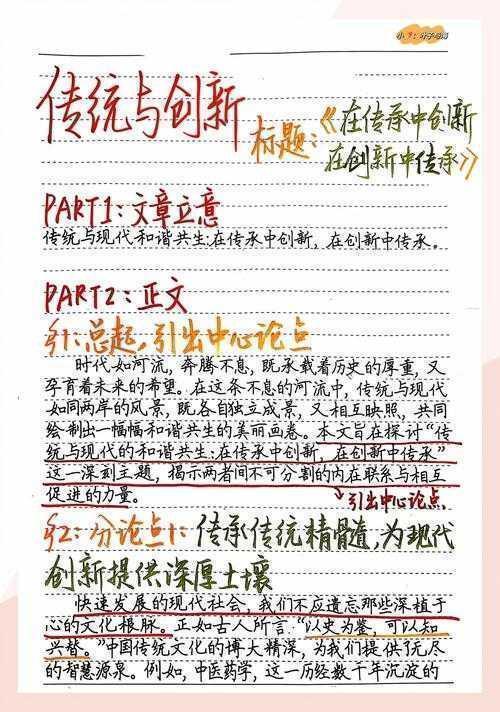 传统与创新
标题:《在传承中创新
在创新中传承》
PART1:文章立意
传统与现代和谐共生:在传承中创新,在创新中传承。
PART2:正文
¶1:总起,引出中心论点
时代如河流,奔腾不息,既承载着历史的厚重,又
孕育着未来的希望。在这条不息的河流中,传统与现代
如同两岸的风景,既各自独立成景,又相互映照,共同
绘制出一幅幅和谐共生的美丽画卷。本文旨在探讨“传
统与现代的和谐共生:在传承中创新,在创新中传承”
这一深刻主题,揭示两者间不可分割的内在联系与相互
促进的力量。
引出中心论点
¶2:分论点1:传承传统精髓,为现代
创新提供深厚土壤
快速发展的现代社会,我们不应遗忘那些深植于
心的文化根脉。正如古人所言“以史为鉴,可以知
兴替。”中国传统文化的博大精深,为我们提供了无尽
的智慧源泉。例如,中医药学,这一历经数千年沉淀的